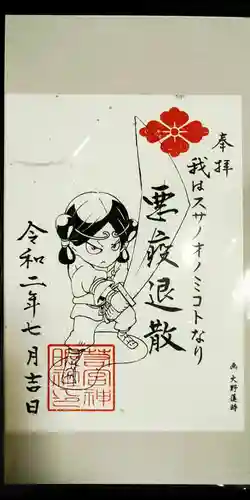 奉拝
我はスサノオノミコトなり
悪疫退散
令和二年七月吉日
画 大野蓮時